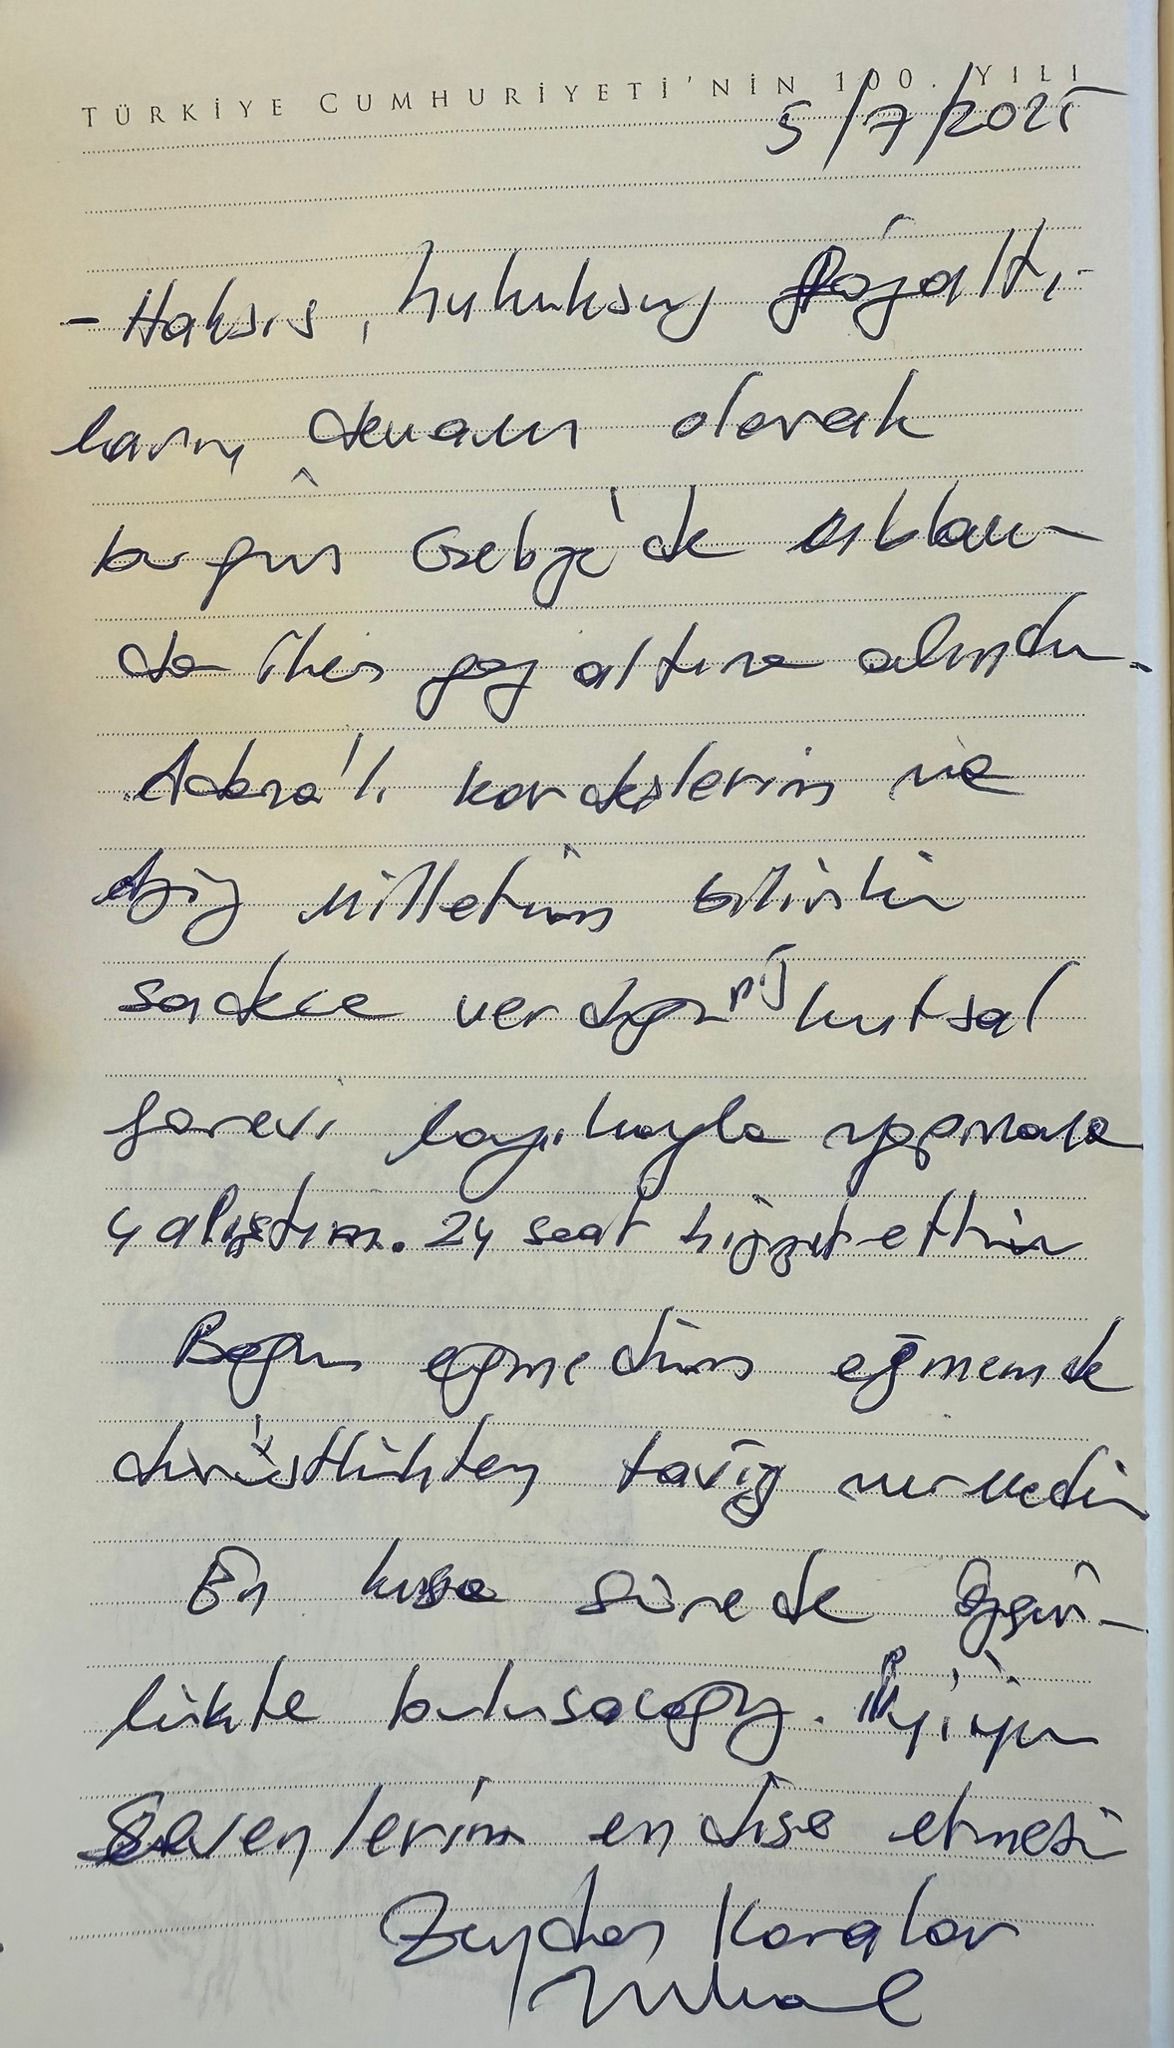 TÜRKİYE CUMHURİYETİ'NİN 100. YILI
5/7/2025
- Haksız, hukuksuz gözaltı-
ların devamı olarak
bugün Gebze'de ablam-
da iken göz altına alındım.
Adana'lı kardeşlerim ve
Aziz Milletim bilsin ki
sadece verdiğiniz kutsal
görevi layıkıyla yapmaya
çalıştım. 24 saat hizmet ettim
Boyun eğmedim eğmem de
dürüstlükten taviz vermedim
En kısa sürede özgür-
lükte buluşacağız. İyiyim
Sevenlerim endişe etmesin
Zeydan Karalar